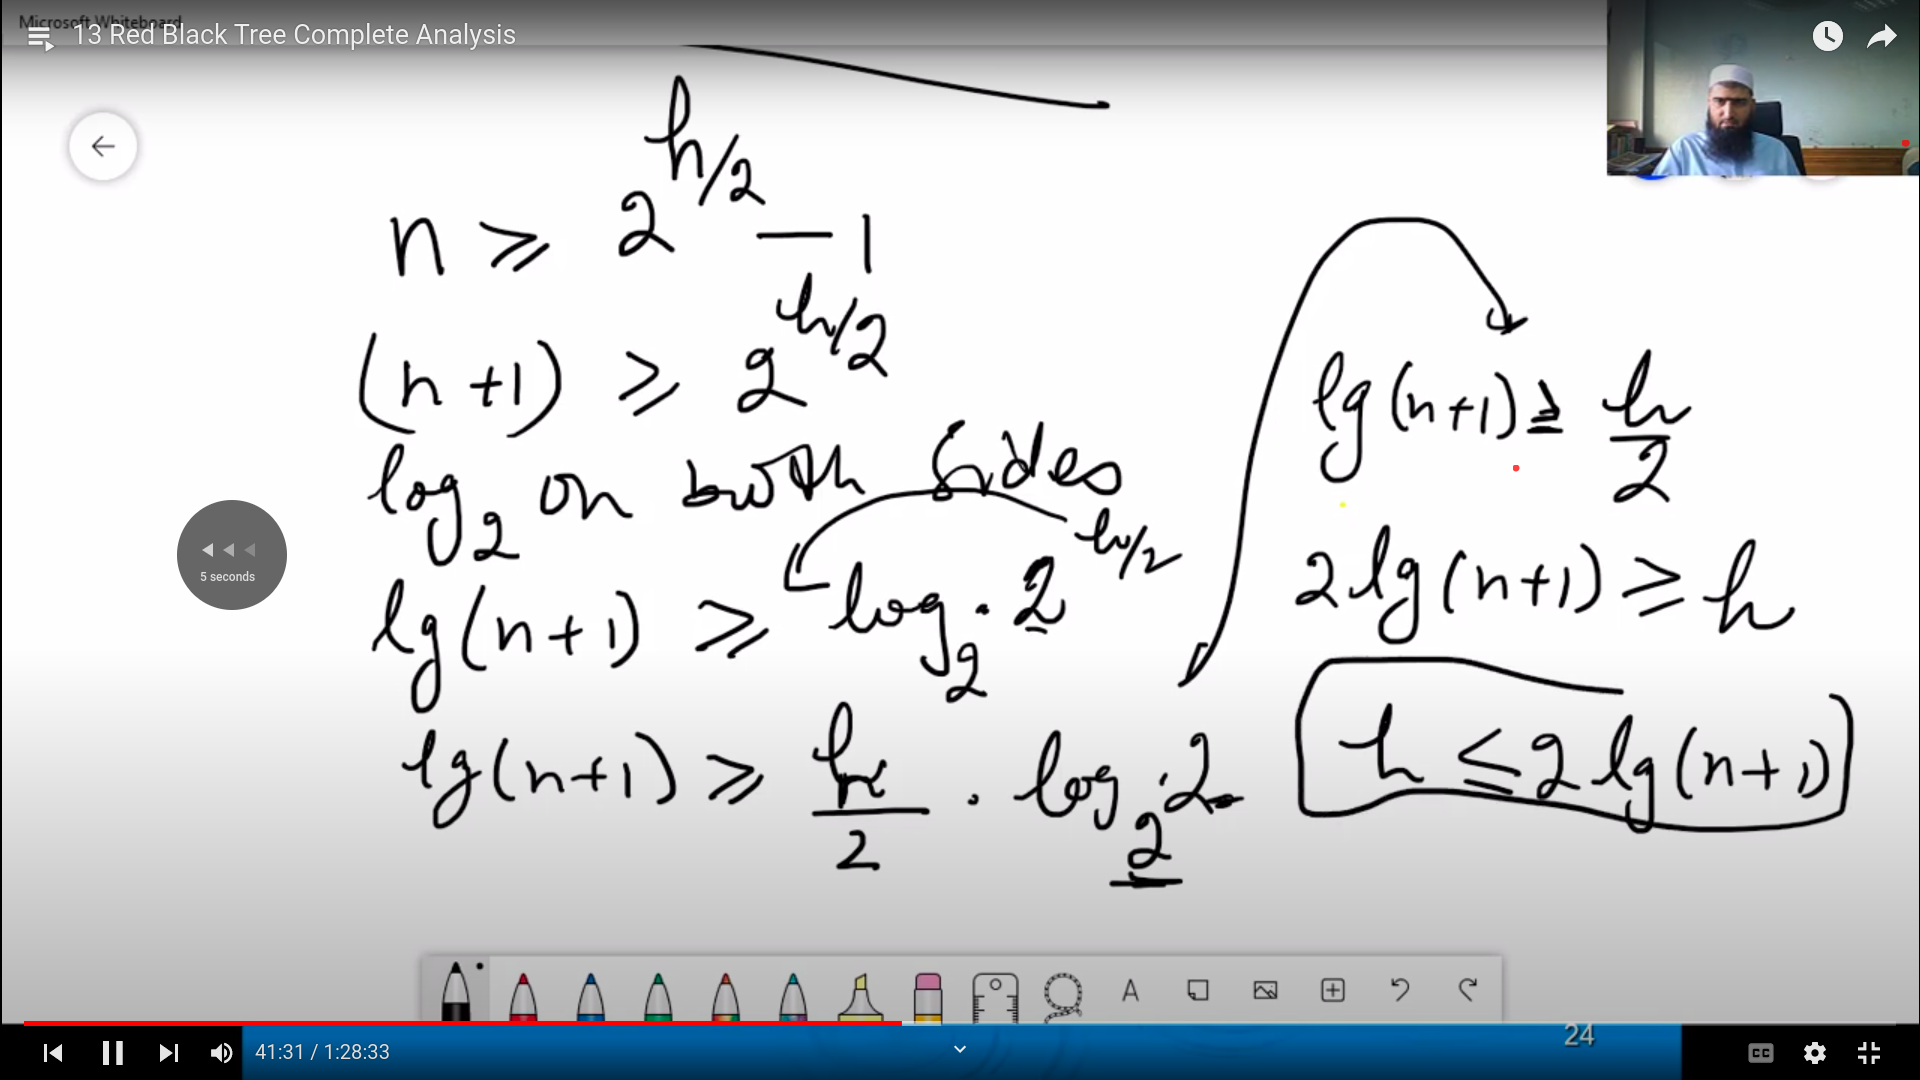 Microsoft Whiteboard
13 Red Black Tree Complete Analysis
n ≥ 2^h/2 - 1
(n+1) ≥ 2^h/2
log₂ on both sides
lg(n+1) ≥ log₂ · 2^h/2
lg(n+1) ≥ h/2 · log₂ · 2
lg(n+1) ≥ h/2
2lg(n+1) ≥ h
h ≤ 2lg(n+1)
5 seconds
A
24
41:31 / 1:28:33
CC